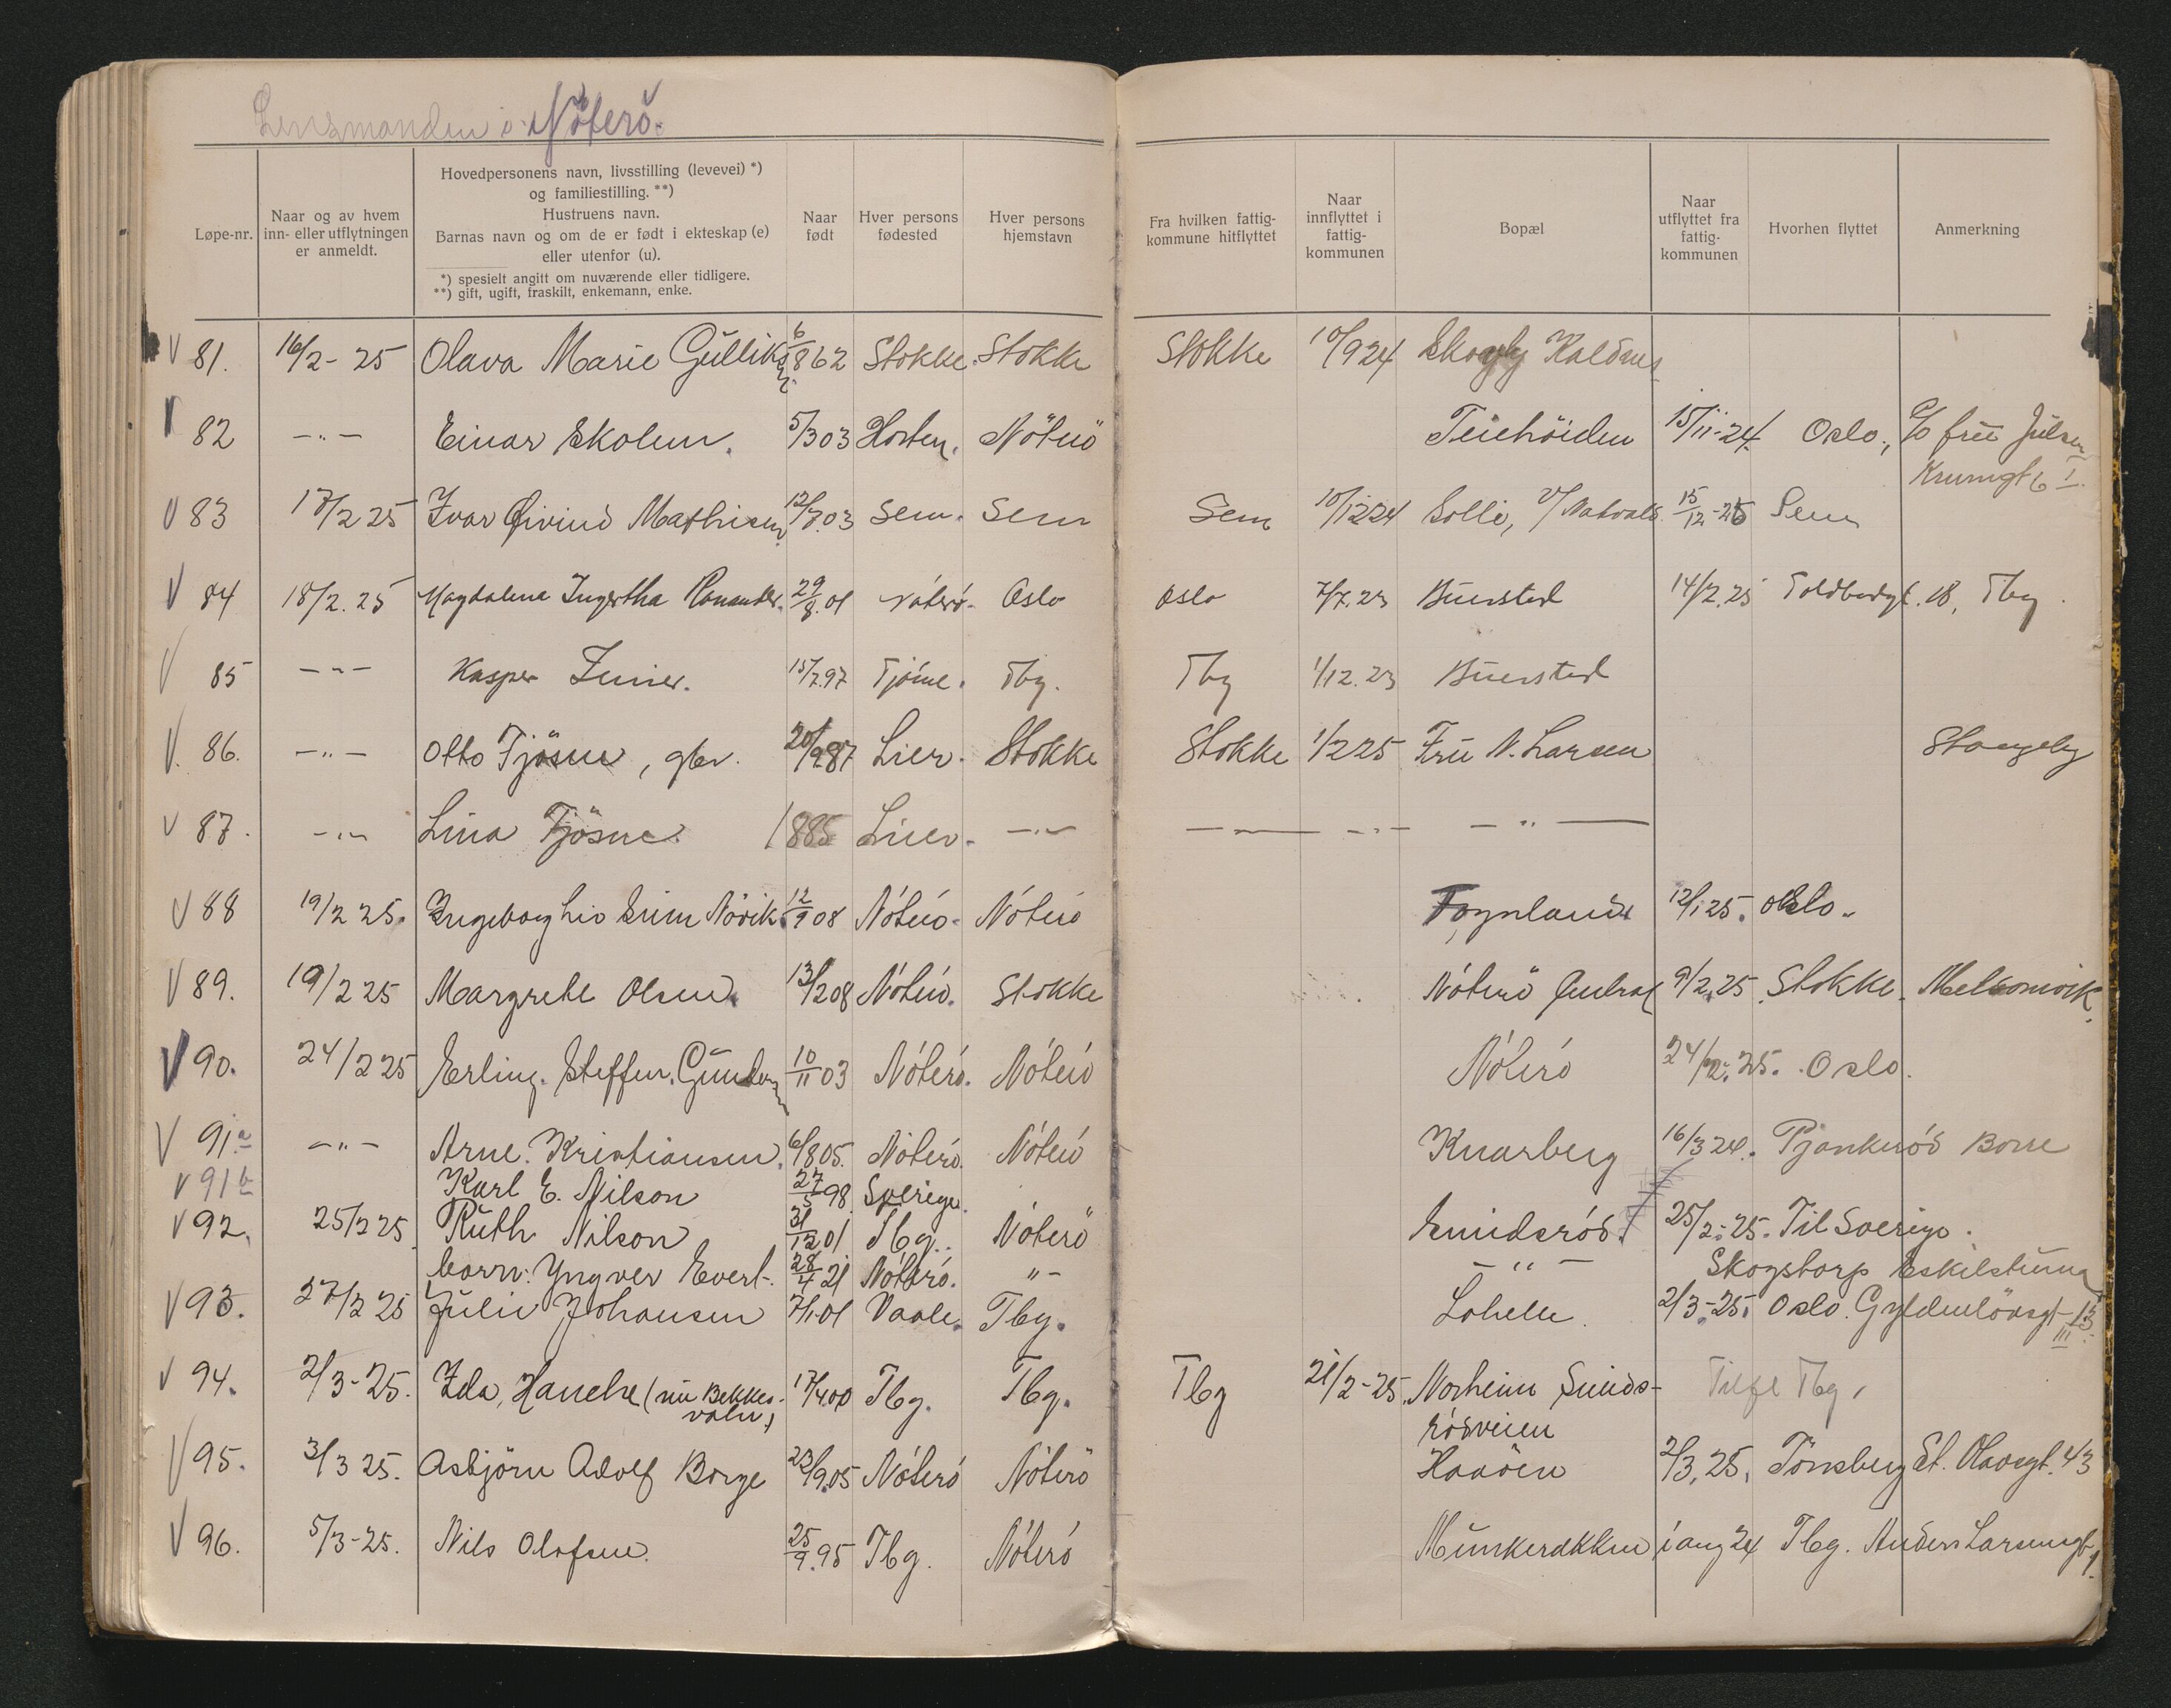 Lensmanden i Nöterö.
Løpe-nr.
Naar og av hvem
inn- eller utflytningen
er anmeldt.
Hovedpersonens navn, livsstilling (levevei) *)
og familiestilling. **)
Hustruens navn.
Barnas navn og om de er født i ekteskap (e)
eller utenfor (u).
*) spesielt angitt om nuværende eller tidligere.
**) gift, ugift, fraskilt, enkemann, enke.
Naar
født
Hver persons
fødested
Hver persons
hjemstavn
Fra hvilken fattig-
kommune hitflyttet
Naar
innflyttet i
fattig-
kommunen
Bopæl
Naar
utflyttet fra
fattig-
kommunen
Hvorhen flyttet
Anmerkning
V 81. 16/2-25 Olava Marie Gulliksen. 6/8 62 Stokke. Stokke Stokke 10/9 24 Skogly Kaldnes
V 82 -"- Einar Skolem. 5/3 03 Horten. Nöterö Teiehöiden 15/11-24. Oslo., c/o frü Jülsen
Krumgt 6 I.
V 83 17/2 25 Ivar Øivind Mathisen 12/7.03 Sem. Sem Sem 10/12 24 Solli, 15/12-25 Sem
V 84 18/2.25 Magdalena Ingertha 29/8.01 Nöterö. Oslo Oslo 7/7.23 Buerstad 14/2.25 Toldbodgt. 18, Tbg.
V 85 -"- Kasper 15/7.97 Tjöme. Tbg. Tbg 1/12.23 Buerstad
V. 86. -"- Otto Tjösne, gbr. 20/9 87 Lier. Stokke Stokke 1/2 25 Frü N. Larsen Stangeby
V 87. -"- Lina Tjösne. 1885 Lier. -"- -"- -"- -"-
V 88 19/2 25. Ingeborg Liv Növik. 12/9 08 Nöterö. Nöterö Føynland 12/1 25. Oslo.
V 89. 19/2 25 Margrete Olsen. 13/2 08 Nöterö. Stokke Nöterö Sentral 9/2.25 Stokke. Melsomvik.
V 90. 24/2 25 Erling. Steffen. Gundersen 10/11 03 Nöterö. Nöterö Nöterö 24/2. 25. Oslo.
V 91.a -"- Arne. Kristiansen. 6/8 05. Nöterö. Nöterö Knarberg 16/3 24. Pjonkeröd Borre
V 91 b Karl E. Nilson 27/5 98. Sverige.
V 92. 25/2 25. Ruth Nilson 31/12 01 Tbg. Nöterö Smidsröd. 25/2.-25. Til Sverige.
barn: Yngver Evert. 28/4 21 Nöterö. "- -"- Skogstorp Eskilstuna
V 93. 27/2 25 Julie Johansen 7/1.01 Vaale. Tbg. Lohelle. 2/3-25. Oslo. Gyldenlövsgt-13 III.
V 94. 2/3-25. Ida, Hanche (nu Bekkes- 17/4.00 Tbg. Tbg. Tbg 21/2-25. Norheim Smids- Tilfl Tbg.
rödveien
V 95. 3/3 25. Asbjörn Adolf Borge 23/9.05 Nöterö Nöterö Haaöen 2/3.25. Tönsberg St. Olavsgt. 43
V 96. 5/3-25. Nils Olafsen. 25/9.95 Tbg. Nöterö Munkerekken i aug 24 Tbg. Anders Larsensgt 1.